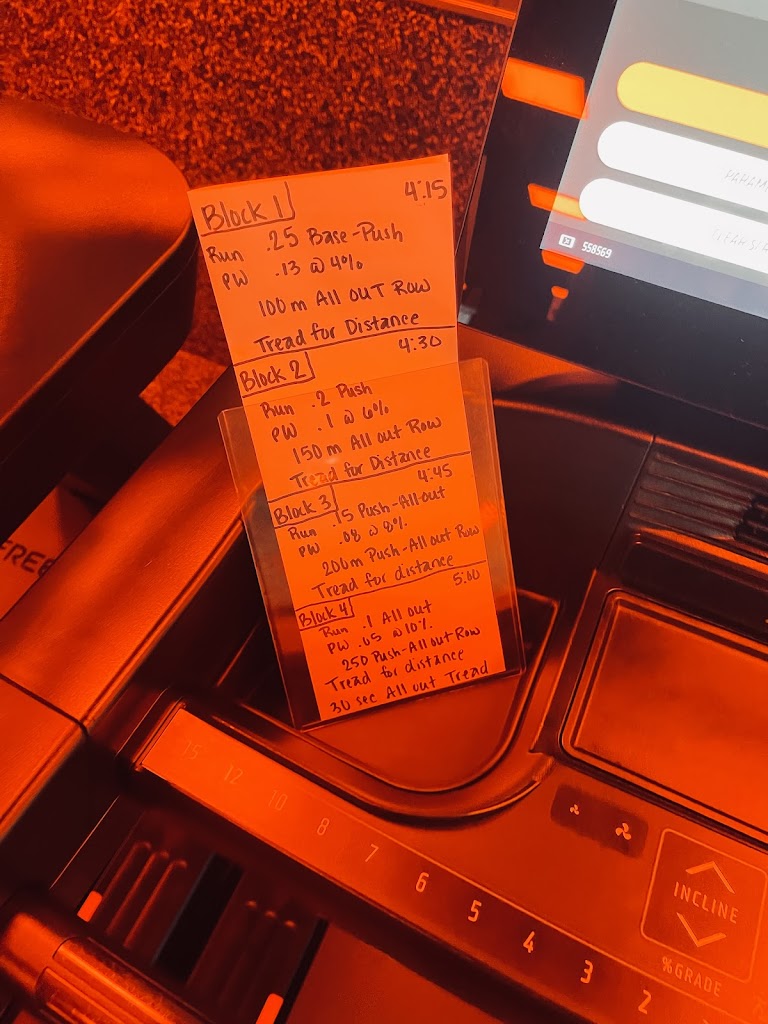 Block 1 4:15
Run .25 Base-Push
PW .13 @ 4%
100m All OUT Row
Tread for Distance
Block 2 4:30
Run .2 Push
PW .1 @ 6%
150m All out Row
Tread for Distance
Block 3 4:45
Run .15 Push-All-out
PW .08 @ 8%
200m Push-All out Row
Tread for distance
Block 4 5:00
Run .1 All out
PW .05 @ 10%
250 Push-All out Row
Tread for distance
30 sec All out Tread
558569
FREE
15 12 10 8 7 6 5 4 3 2
INCLINE
%GRADE